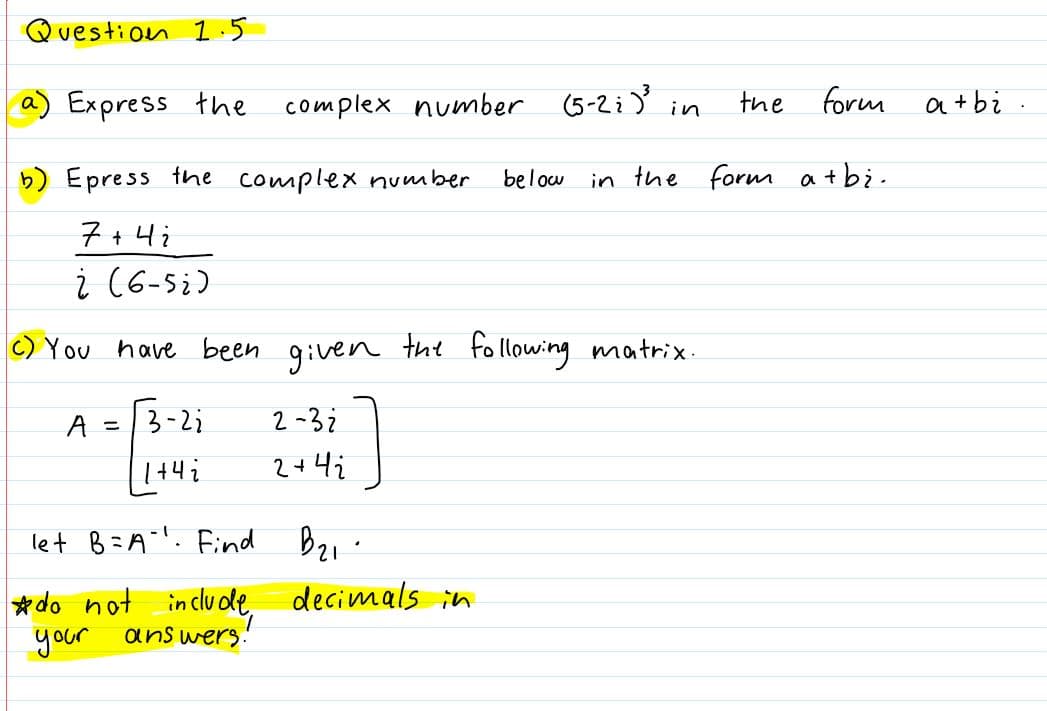 Question 1.5
a) Express the complex number (5-2i)³ in the form a+bi.
b) Epress the complex number below in the form a+bi.
7+4i
i (6-5i)
c) You have been given the following matrix.
A = [3-2i 2-3i
1+4i 2+4i]
let B=A⁻¹. Find B₂₁.
*do not include decimals in
your answers!